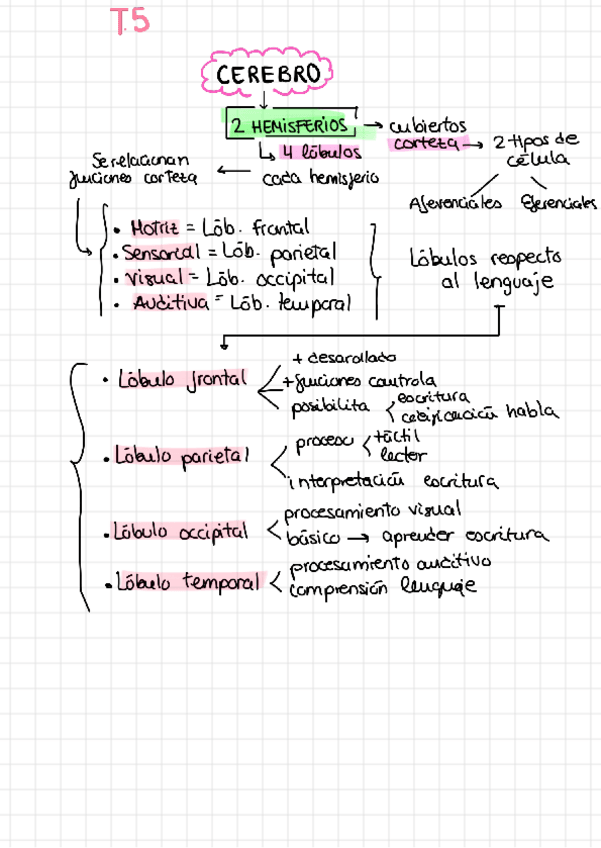 T.5
CEREBRO
2 HEMISFERIOS → cubiertos
corteza → 2 tipos de
célula
4 lóbulos
cada hemisferio
Se relacionan
funciones corteza
Aferenciales Eferenciales
• Motriz = Lób. frontal
• Sensorial = Lób. parietal
• Visual = Lób. occipital
• Auditiva = Lób. temporal
Lóbulos respecto
al lenguaje
• Lóbulo frontal
+ desarollado
+ funciones controla
posibilita
escritura
codificación habla
• Lóbulo parietal
proceso
táctil
lector
interpretación escritura
• Lóbulo occipital
procesamiento visual
básico → aprender escritura
• Lóbulo temporal
procesamiento auditivo
comprensión lenguaje